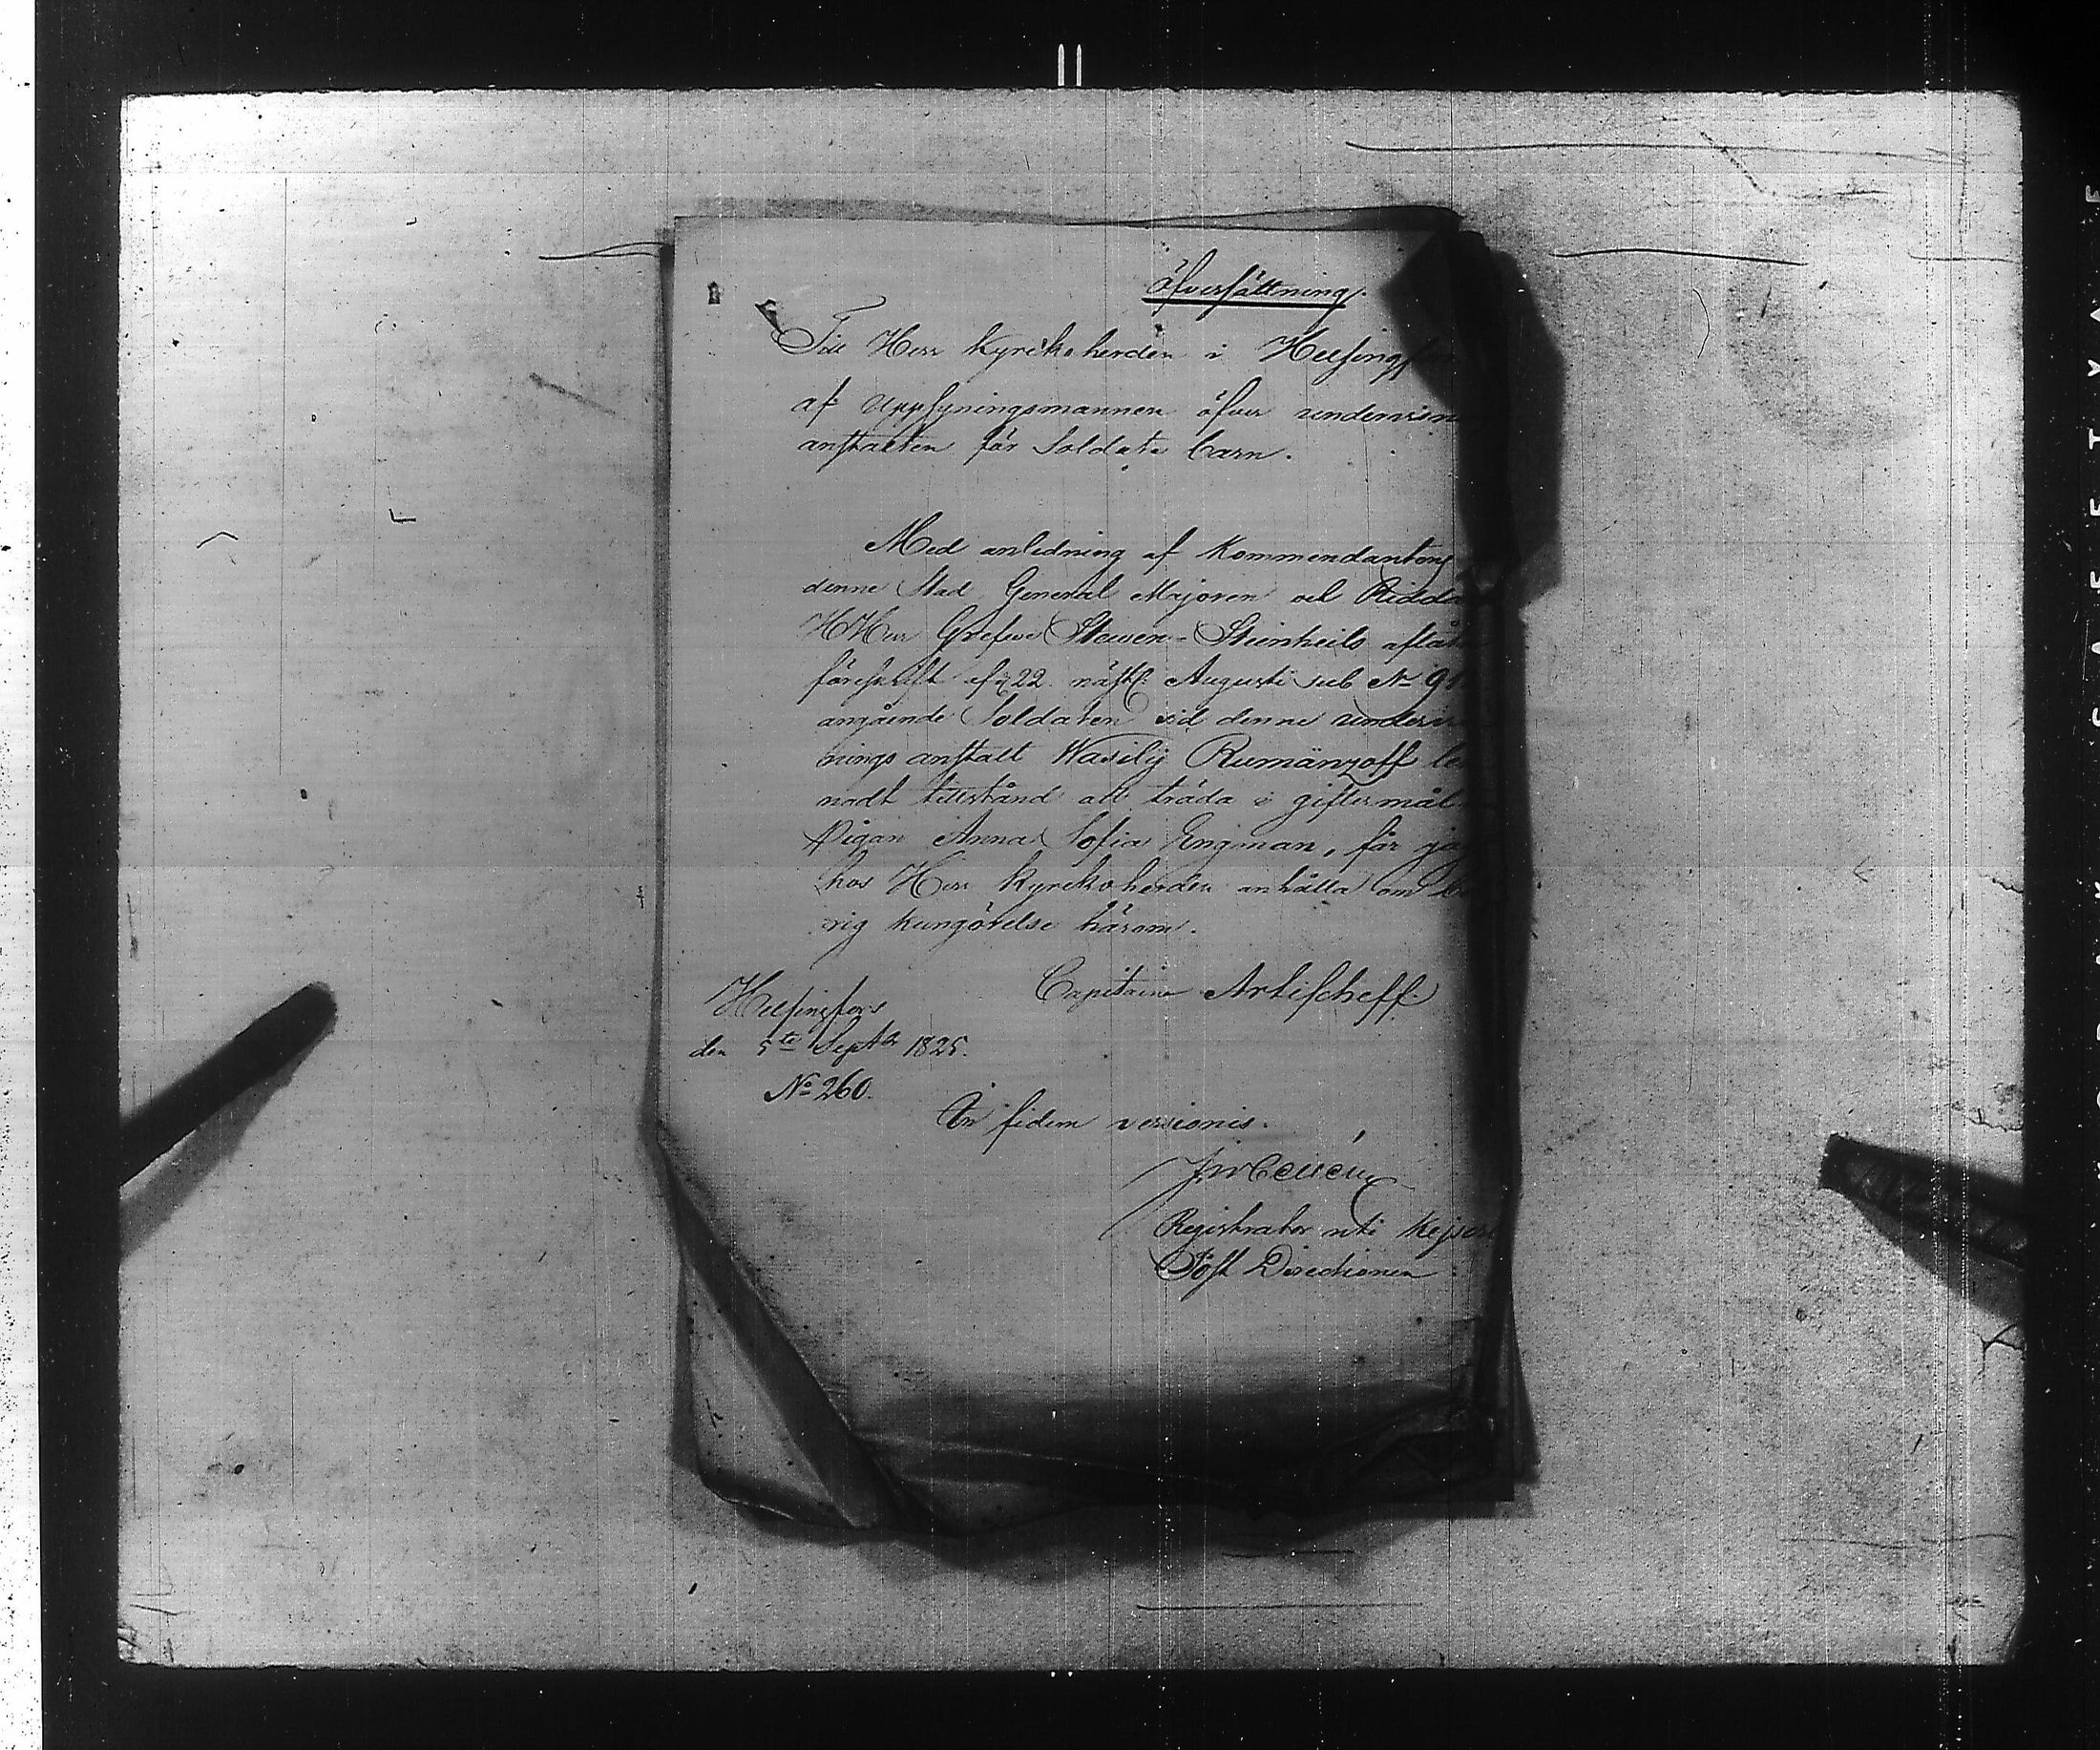 Öfversättning.
Till Herr Kyrkoherden i Helsingf
af Uppsyningsmannen öfver undervisn
anstalten för Soldate barn.
Med anledning af Kommendantens
denne Stad General Majoren och Ridda
HHerr Grefve Steven-Steinheils aflåt
föreskrift af d 22 nästl. Augusti sub No
angående Soldaten vid denne undervis
nings anstalt Wasilij Rumänzoff le
nadt tillstånd att träda i giftermål
Pigan Anna Sofia Engman, får ja
hos Herr Kyrkoherden anhålla om
rig kungörelse härom.
Capitaine Artischeff.
Helsingfors
den 5te Septbr 1825.
No 260.
In fidem versionis.
Registrator uti Kejserl
Post Directionen